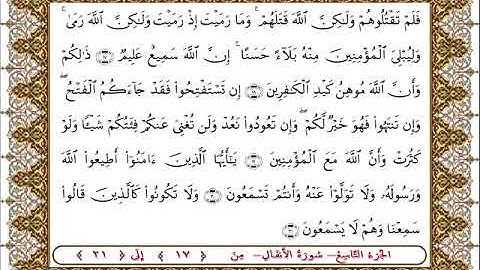 فَلَمْ تَقْتُلُوهُمْ وَلَٰكِنَّ ٱللَّهَ قَتَلَهُمْ ۚ وَمَا رَمَيْتَ إِذْ رَمَيْتَ وَلَٰكِنَّ ٱللَّهَ رَمَىٰ ۚ
وَلِيُبْلِىَ ٱلْمُؤْمِنِينَ مِنْهُ بَلَآءً حَسَنًا ۚ إِنَّ ٱللَّهَ سَمِيعٌ عَلِيمٌ ۝١٧ ذَٰلِكُمْ
وَأَنَّ ٱللَّهَ مُوهِنُ كَيْدِ ٱلْكَٰفِرِينَ ۝١٨ إِن تَسْتَفْتِحُوا۟ فَقَدْ جَآءَكُمُ ٱلْفَتْحُ ۖ
وَإِن تَنتَهُوا۟ فَهُوَ خَيْرٌ لَّكُمْ ۖ وَإِن تَعُودُوا۟ نَعُدْ وَلَن تُغْنِىَ عَنكُمْ فِئَتُكُمْ شَيْـًٔا وَلَوْ
كَثُرَتْ وَأَنَّ ٱللَّهَ مَعَ ٱلْمُؤْمِنِينَ ۝١٩ يَٰٓأَيُّهَا ٱلَّذِينَ ءَامَنُوٓا۟ أَطِيعُوا۟ ٱللَّهَ
وَرَسُولَهُۥ وَلَا تَوَلَّوْا۟ عَنْهُ وَأَنتُمْ تَسْمَعُونَ ۝٢٠ وَلَا تَكُونُوا۟ كَٱلَّذِينَ قَالُوا۟
سَمِعْنَا وَهُمْ لَا يَسْمَعُونَ ۝٢١
الجزء التاسع- سورة الأنفال- من ﴿ ١٧ ﴾ إلى ﴿ ٢١ ﴾